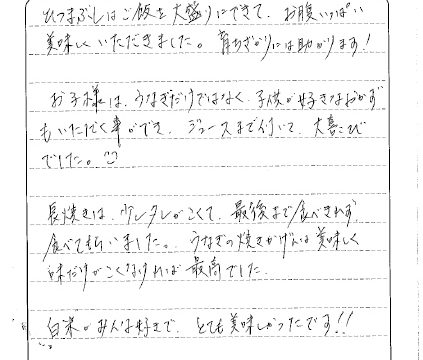 ひつまぶしはご飯を大盛りにできて、お腹いっぱい
美味しくいただきました。育ちざかりには助かります!
お子様は、うなぎだけではなく、子供が好きなおかず
もいただく事ができ、ジュースまで付いて、大喜び
でした。
長焼きは、少しタレがこくて、最後まで食べきれず
食べてもらいました。うなぎの焼きかげんは美味しく
味だけがこくなければ最高でした。
白米がみんな好きで、とても美味しかったです!!